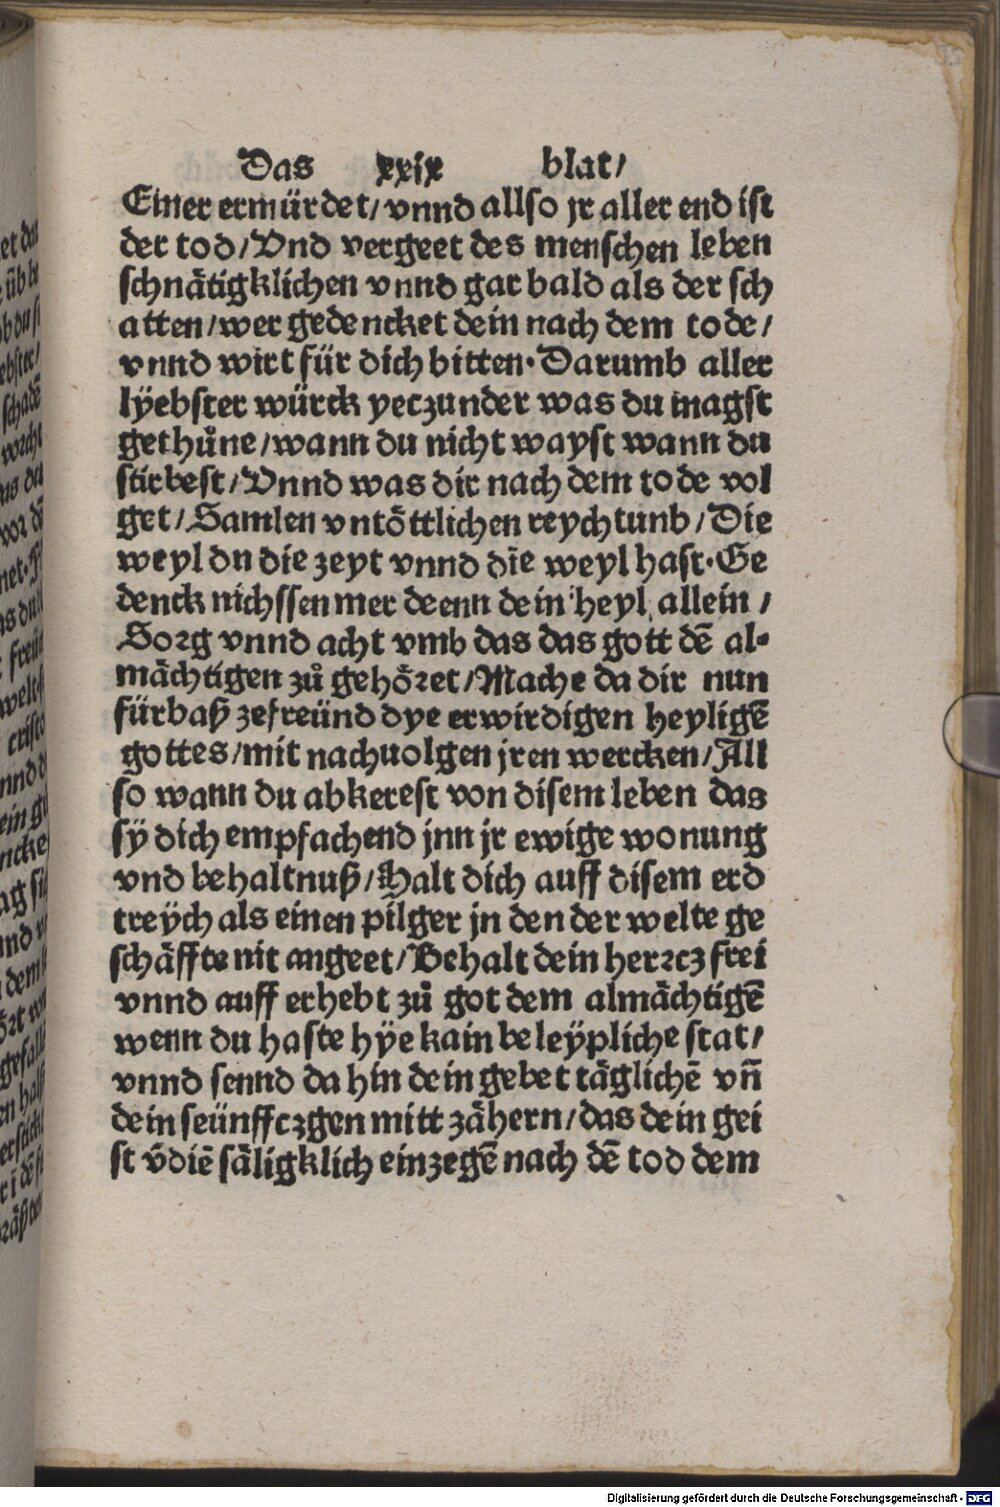 Das xxix blat/
Einer ermürdet/vnnd allso jr aller end ist
der tod/Vnd vergeet des menschen leben
schnätigklichen vnnd gar bald als der sch
atten/wer gedencket dein nach dem tode/
vnnd wirt für dich bitten·Darumb aller
lÿebster würck yeczunder was du magst
gethůne/wann du nicht wayst wann du
stirbest/Vnnd was dir nach dem tode vol
get/Samlen vntöttlichen reychtunb/Die
weyl dn die zeyt vnnd die weyl hast·Ge
denck nichssen mer deenn dein heyl allein/
Sorg vnnd acht vmb das das gott dē al-
mächtigen zů gehöret/Mache da dir nun
fürbaß zefreünd dye erwirdigen heyligē
gottes/mit nachuolgen jren wercken/All
so wann du abkerest von disem leben das
sÿ dich empfachend jnn jr ewige wonung
vnd behaltnuß/Halt dich auff disem erd
treÿch als einen pilger jn den der welte ge
schäffte nit angeet/Behalt dein herrcz frei
vnnd auff erhebt zů got dem almächtigē
wenn du haste hÿe kain beleÿpliche stat/
vnnd sennd da hin dein gebet täglichē vn̄
dein seünffczgen mitt zähern/das dein gei
st v̄diē säligklich einzegē nach dē tod dem
Digitalisierung gefördert durch die Deutsche Forschungsgemeinschaft - DFG